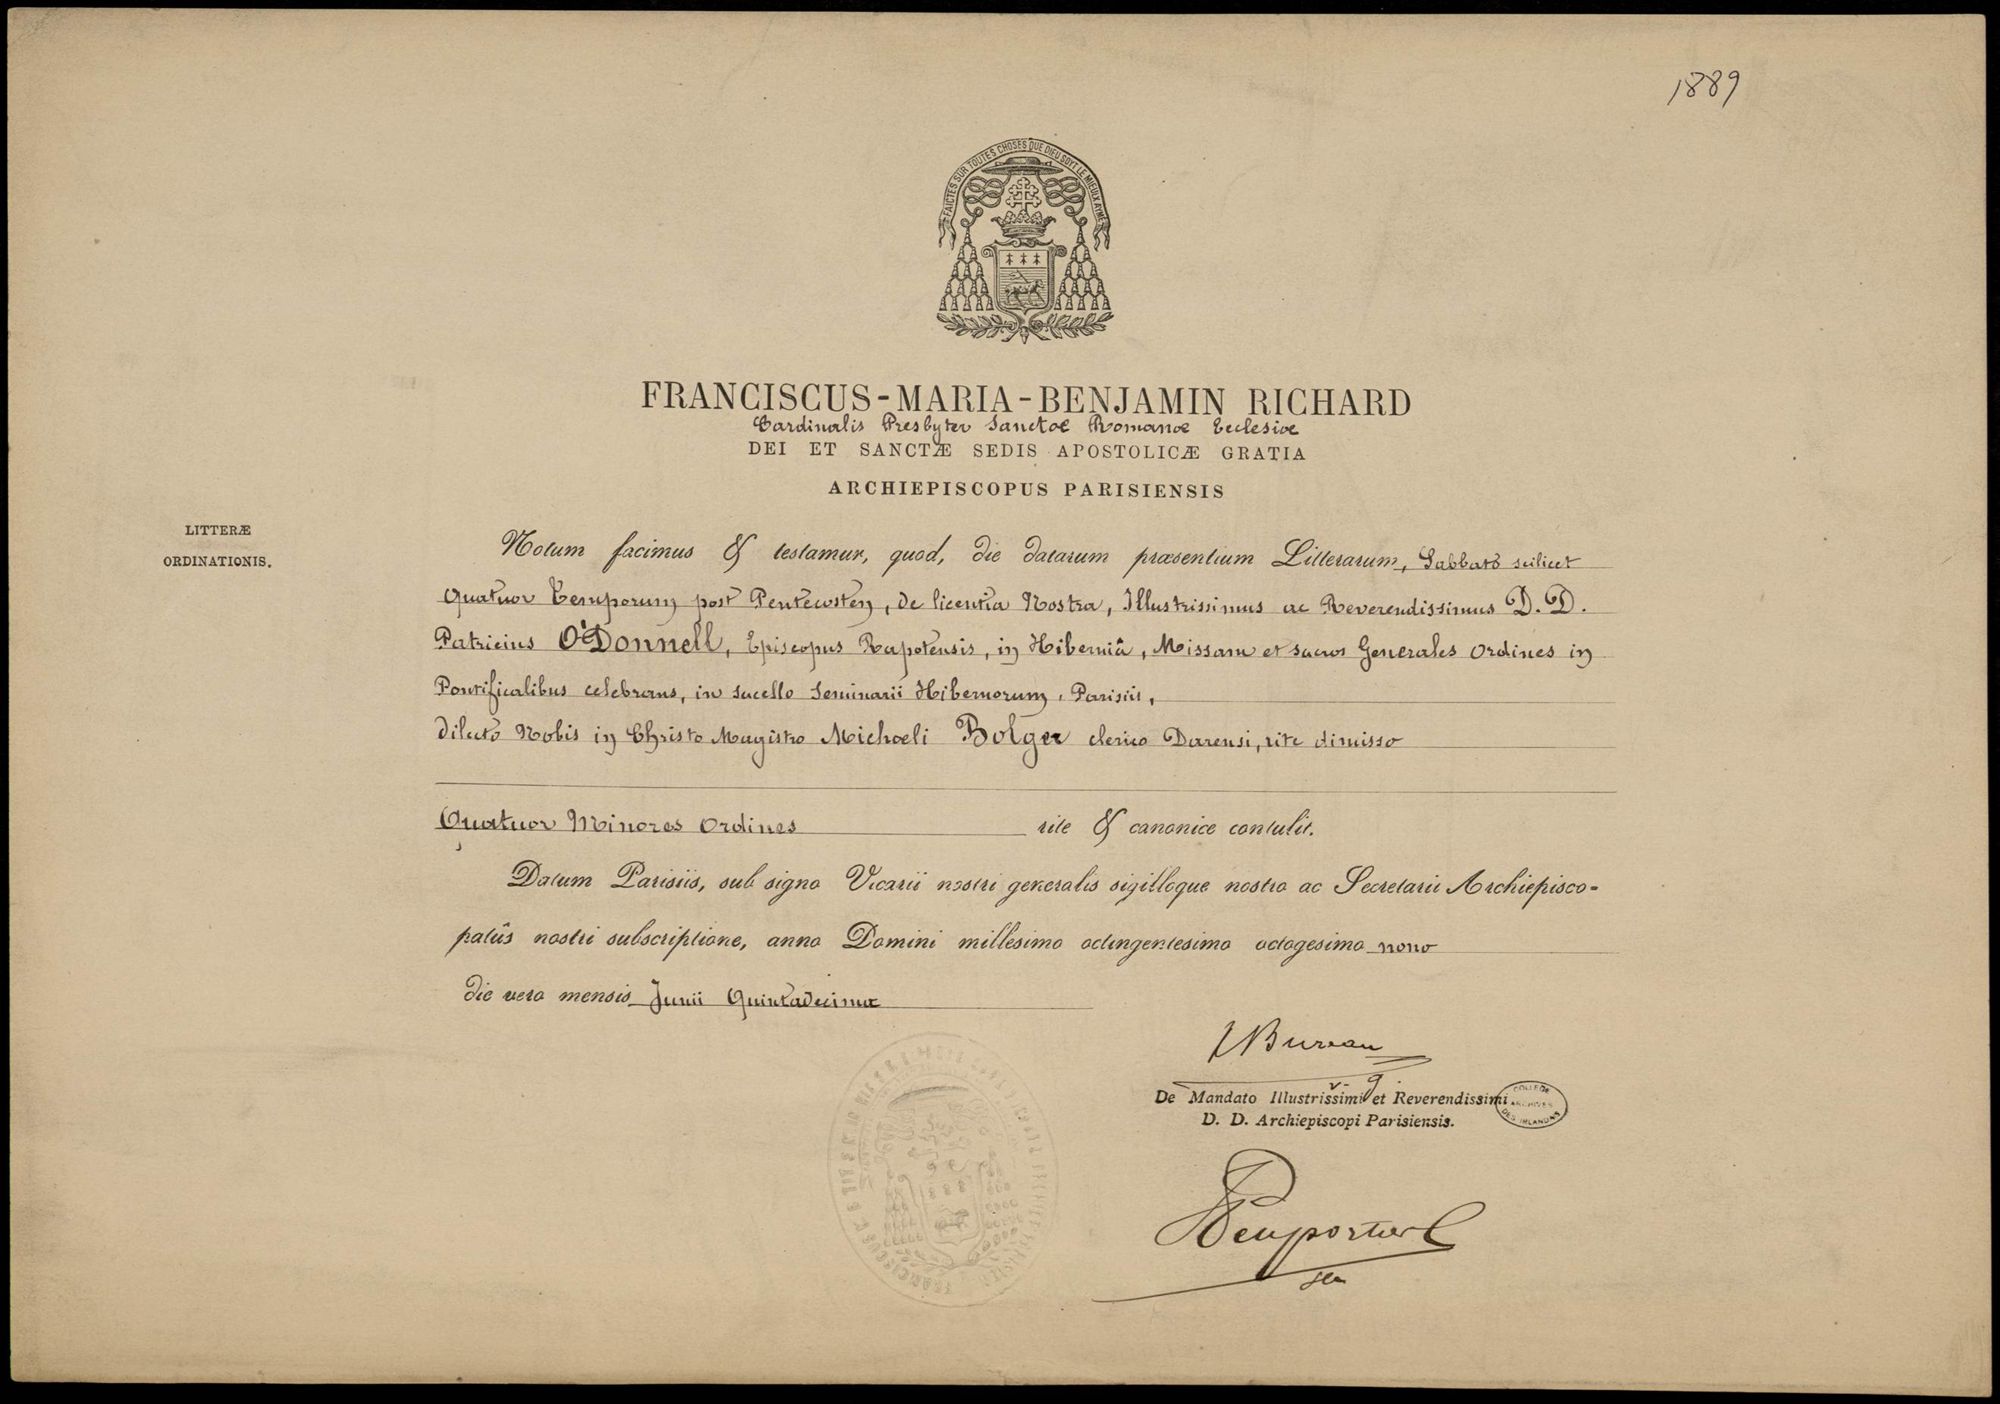 1889
FAICTES SUR TOUTES CHOSES QUE DIEU SOYT LE MIEULX AYME
FRANCISCUS-MARIA-BENJAMIN RICHARD
Cardinalis Presbyter Sanctæ Romanæ Ecclesiæ
DEI ET SANCTÆ SEDIS APOSTOLICÆ GRATIA
ARCHIEPISCOPUS PARISIENSIS
LITTERÆ
ORDINATIONIS.
Notum facimus & testamur, quod, die datarum præsentium Litterarum, Sabbato scilicet
Quatuor Temporum post Pentecosten, de licentia Nostra, Illustrissimus ac Reverendissimus D. D.
Patricius O'Donnell, Episcopus Rapotensis, in Hiberniâ, Missam et sacros Generales Ordines in
Pontificalibus celebrans, in sacello Seminarii Hibernorum, Parisiis,
dilecto Nobis in Christo Magistro Michaeli Bolger clerico Darensi, rite dimisso
Quatuor Minores Ordines rite & canonice contulit.
Datum Parisiis, sub signo Vicarii nostri generalis sigilloque nostro ac Secretarii Archiepisco-
patûs nostri subscriptione, anno Domini millesimo octingentesimo octogesimo nono
die vero mensis Junii Quintadecima
Bureau
v. g.
De Mandato Illustrissimi et Reverendissimi
D. D. Archiepiscopi Parisiensis.
COLLEGE
ARCHIVES
DES IRLANDAIS